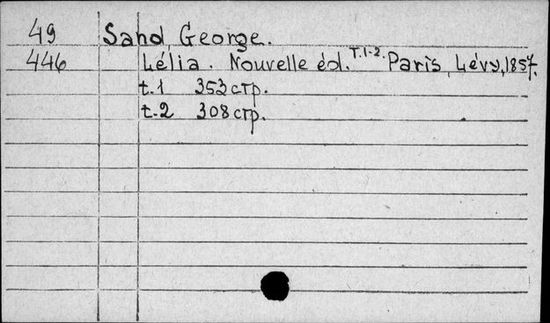 49 Sand, George.
446 Lélia. Nouvelle éd. T.1-2. Paris, Lévy, 1857.
t.1 353 стр.
t.2 308 стр.